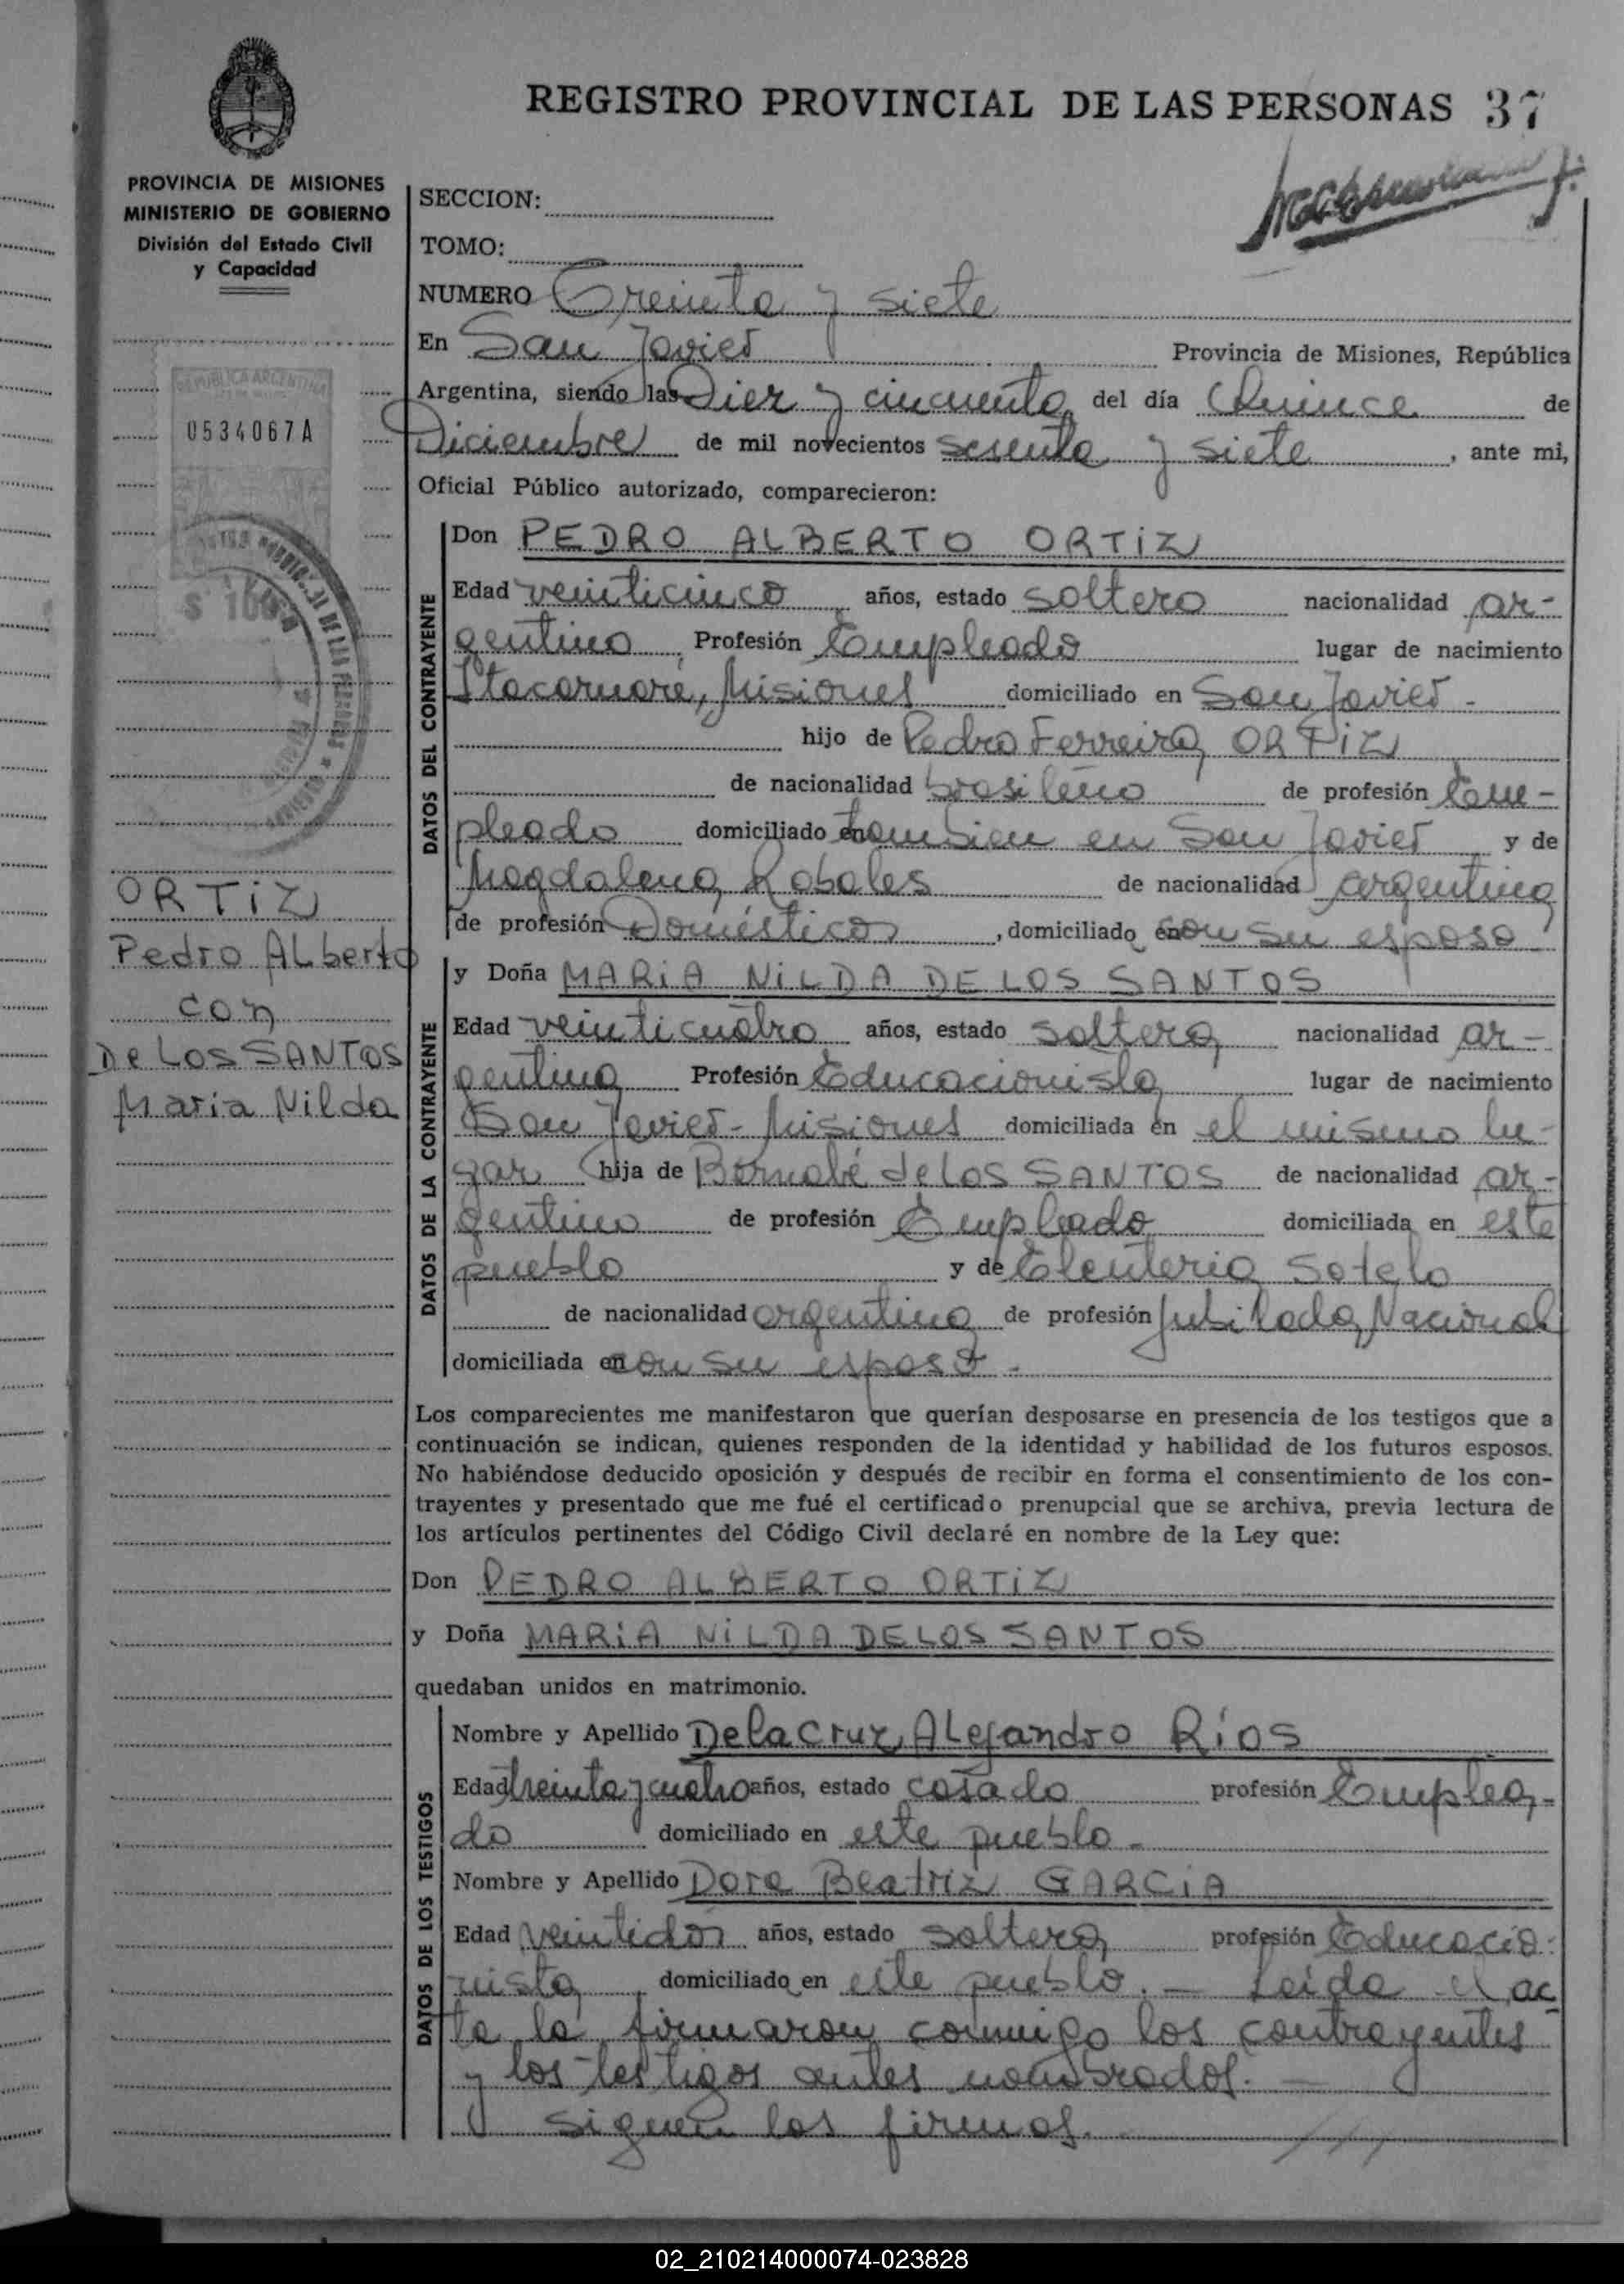 REGISTRO PROVINCIAL DE LAS PERSONAS 37
PROVINCIA DE MISIONES
MINISTERIO DE GOBIERNO
División del Estado Civil
y Capacidad
REPUBLICA ARGENTINA
0534067A
ORTiZ
Pedro ALberto
con
De Los SANTOS
Maria Nilda
SECCION:
TOMO:
NUMERO Treinta y siete
En San Javier Provincia de Misiones, República
Argentina, siendo las Diez y cincuenta del día Quince de
Diciembre de mil novecientos sesenta y siete, ante mi,
Oficial Público autorizado, comparecieron:
DATOS DEL CONTRAYENTE
Don PEDRO ALBERTO ORTiZ
Edad veinticinco años, estado soltero nacionalidad ar-
gentino Profesión Empleado lugar de nacimiento
Itacaruaré, Misiones domiciliado en San Javier -
hijo de Pedro Ferreira ORTiZ
de nacionalidad brasileño de profesión Em-
pleado domiciliado en tambien en San Javier y de
Magdalena Robales de nacionalidad argentina
de profesión Domésticos, domiciliado en con su esposo
DATOS DE LA CONTRAYENTE
y Doña MARiA NiLDA DE LOS SANTOS
Edad veinticuatro años, estado soltera nacionalidad ar-
gentina Profesión Educacionista lugar de nacimiento
San Javier - Misiones domiciliada en el mismo lu-
gar hija de Bernabé de Los SANTOS de nacionalidad ar-
gentino de profesión Empleado domiciliada en este
pueblo y de Eleuteria Sotelo
de nacionalidad argentina de profesión Jubilada Nacional
domiciliada en con su esposo -
Los comparecientes me manifestaron que querían desposarse en presencia de los testigos que a
continuación se indican, quienes responden de la identidad y habilidad de los futuros esposos.
No habiéndose deducido oposición y después de recibir en forma el consentimiento de los con-
trayentes y presentado que me fué el certificado prenupcial que se archiva, previa lectura de
los artículos pertinentes del Código Civil declaré en nombre de la Ley que:
Don PEDRO ALBERTO ORTiZ
y Doña MARiA NiLDA DE LOS SANTOS
quedaban unidos en matrimonio.
DATOS DE LOS TESTIGOS
Nombre y Apellido De la Cruz Alejandro Ríos
Edad treinta y cuatro años, estado casado profesión Emplea-
do domiciliado en este pueblo -
Nombre y Apellido Dora Beatriz GARCiA
Edad veintidos años, estado soltera profesión Educacio-
nista domiciliado en este pueblo. - Leida el ac
ta la firmaron conmigo los contrayentes
y los testigos antes nombrados. -
Siguen las firmas.
02_210214000074-023828